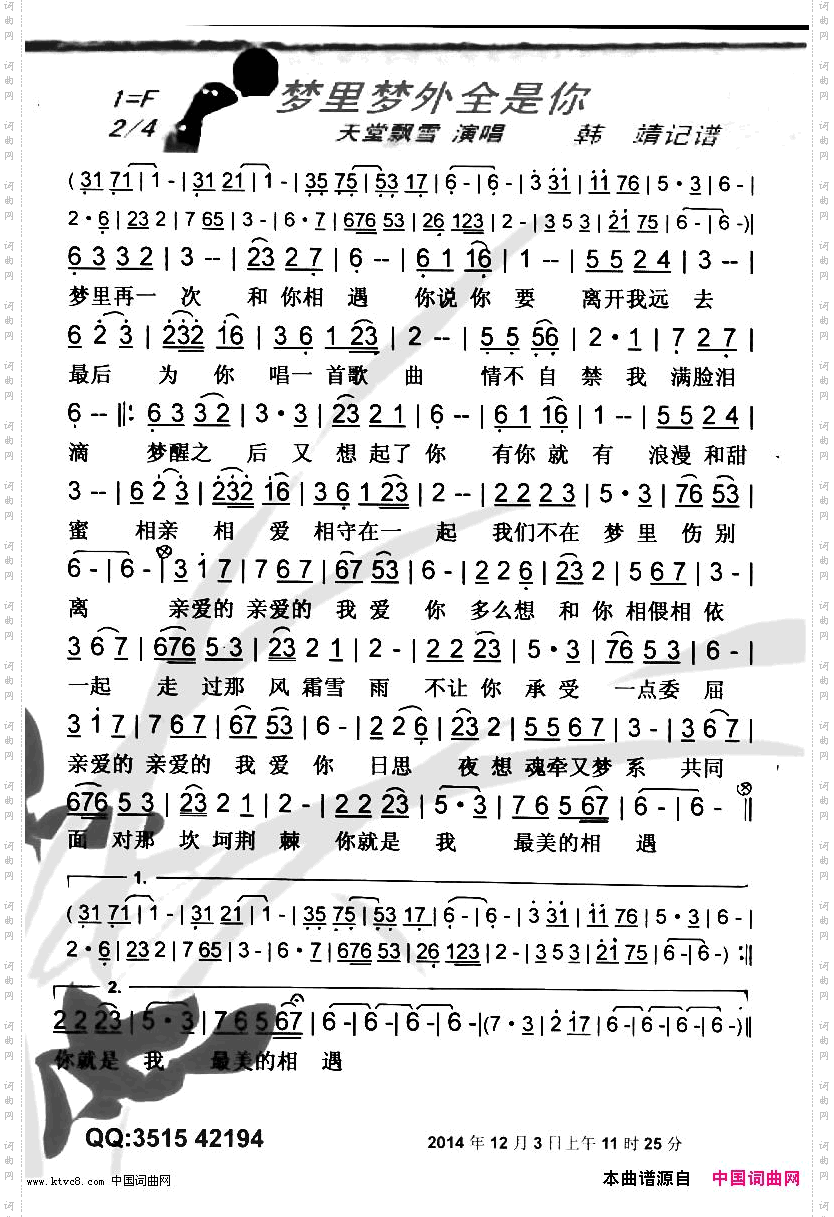 梦里梦外全是你
1=F
2/4
天堂飘雪 演唱 韩 靖记谱
( 31 71 | 1 - | 31 21 | 1 - | 35 75 | 53 17 | 6 - | 6 - | 3 31 | 11 76 | 5 · 3 | 6 - |
2 · 6 | 23 2 | 7 65 | 3 - | 6 · 7 | 676 53 | 26 123 | 2 - | 3 5 3 | 21 75 | 6 - | 6 - ) ||
6 3 3 2 | 3 -- | 23 2 7 | 6 -- | 6 1 16 | 1 -- | 5 5 2 4 | 3 -- |
梦里再一 次 和 你相 遇 你说 你 要 离开我远 去
6 2 3 | 232 16 | 3 6 1 23 | 2 -- | 5 5 56 | 2 · 1 | 7 2 7 |
最后 为 你 唱一 首歌 曲 情不 自 禁 我 满脸泪
6 -- ||: 6 3 32 | 3 · 3 | 23 2 1 | 6 -- | 6 1 16 | 1 -- | 5 5 2 4 |
滴 梦醒之 后 又 想 起了 你 有你 就 有 浪漫 和甜
3 -- | 6 2 3 | 232 16 | 3 6 1 23 | 2 -- | 2 2 2 3 | 5 · 3 | 76 53 |
蜜 相亲 相 爱 相守在一 起 我们不在 梦 里 伤 别
6 - | 6 - | 3 1 7 | 7 6 7 | 67 53 | 6 - | 2 2 6 | 23 2 | 5 5 6 7 | 3 - |
离 亲爱的 亲爱的 我 爱 你 多么想 和 你 相偎相 依
3 6 7 | 676 5·3 | 23 2 1 | 2 - | 2 2 23 | 5 · 3 | 76 5 3 | 6 - |
一起 走 过那 风 霜雪 雨 不让 你 承 受 一点委 屈
3 1 7 | 7 6 7 | 67 53 | 6 - | 2 2 6 | 23 2 | 5 5 6 7 | 3 - | 3 6 7 |
亲爱的 亲爱的 我 爱 你 日思 夜 想 魂牵又梦 系 共同
676 5 3 | 23 2 1 | 2 - | 2 2 23 | 5 · 3 | 7 6 5 67 | 6 - | 6 - ||
面 对那 坎 坷荆 棘 你就是 我 最美的相 遇
1.
( 31 71 | 1 - | 31 21 | 1 - | 35 75 | 53 17 | 6 - | 6 - | 3 31 | 11 76 | 5 · 3 | 6 - |
2 · 6 | 23 2 | 7 65 | 3 - | 6 · 7 | 676 53 | 26 123 | 2 - | 3 5 3 | 21 75 | 6 - | 6 - ) :||
2.
2 2 23 | 5 · 3 | 7 6 5 67 | 6 - | 6 - | 6 - | 6 - | (7 · 3 | 2 17 | 6 - | 6 - | 6 - | 6 - ) ||
你就是 我 最美的相 遇
QQ:3515 42194
2014 年 12 月 3 日上午 11 时 25 分
www.ktvc8.com 中国词曲网
本曲谱源自 中国词曲网